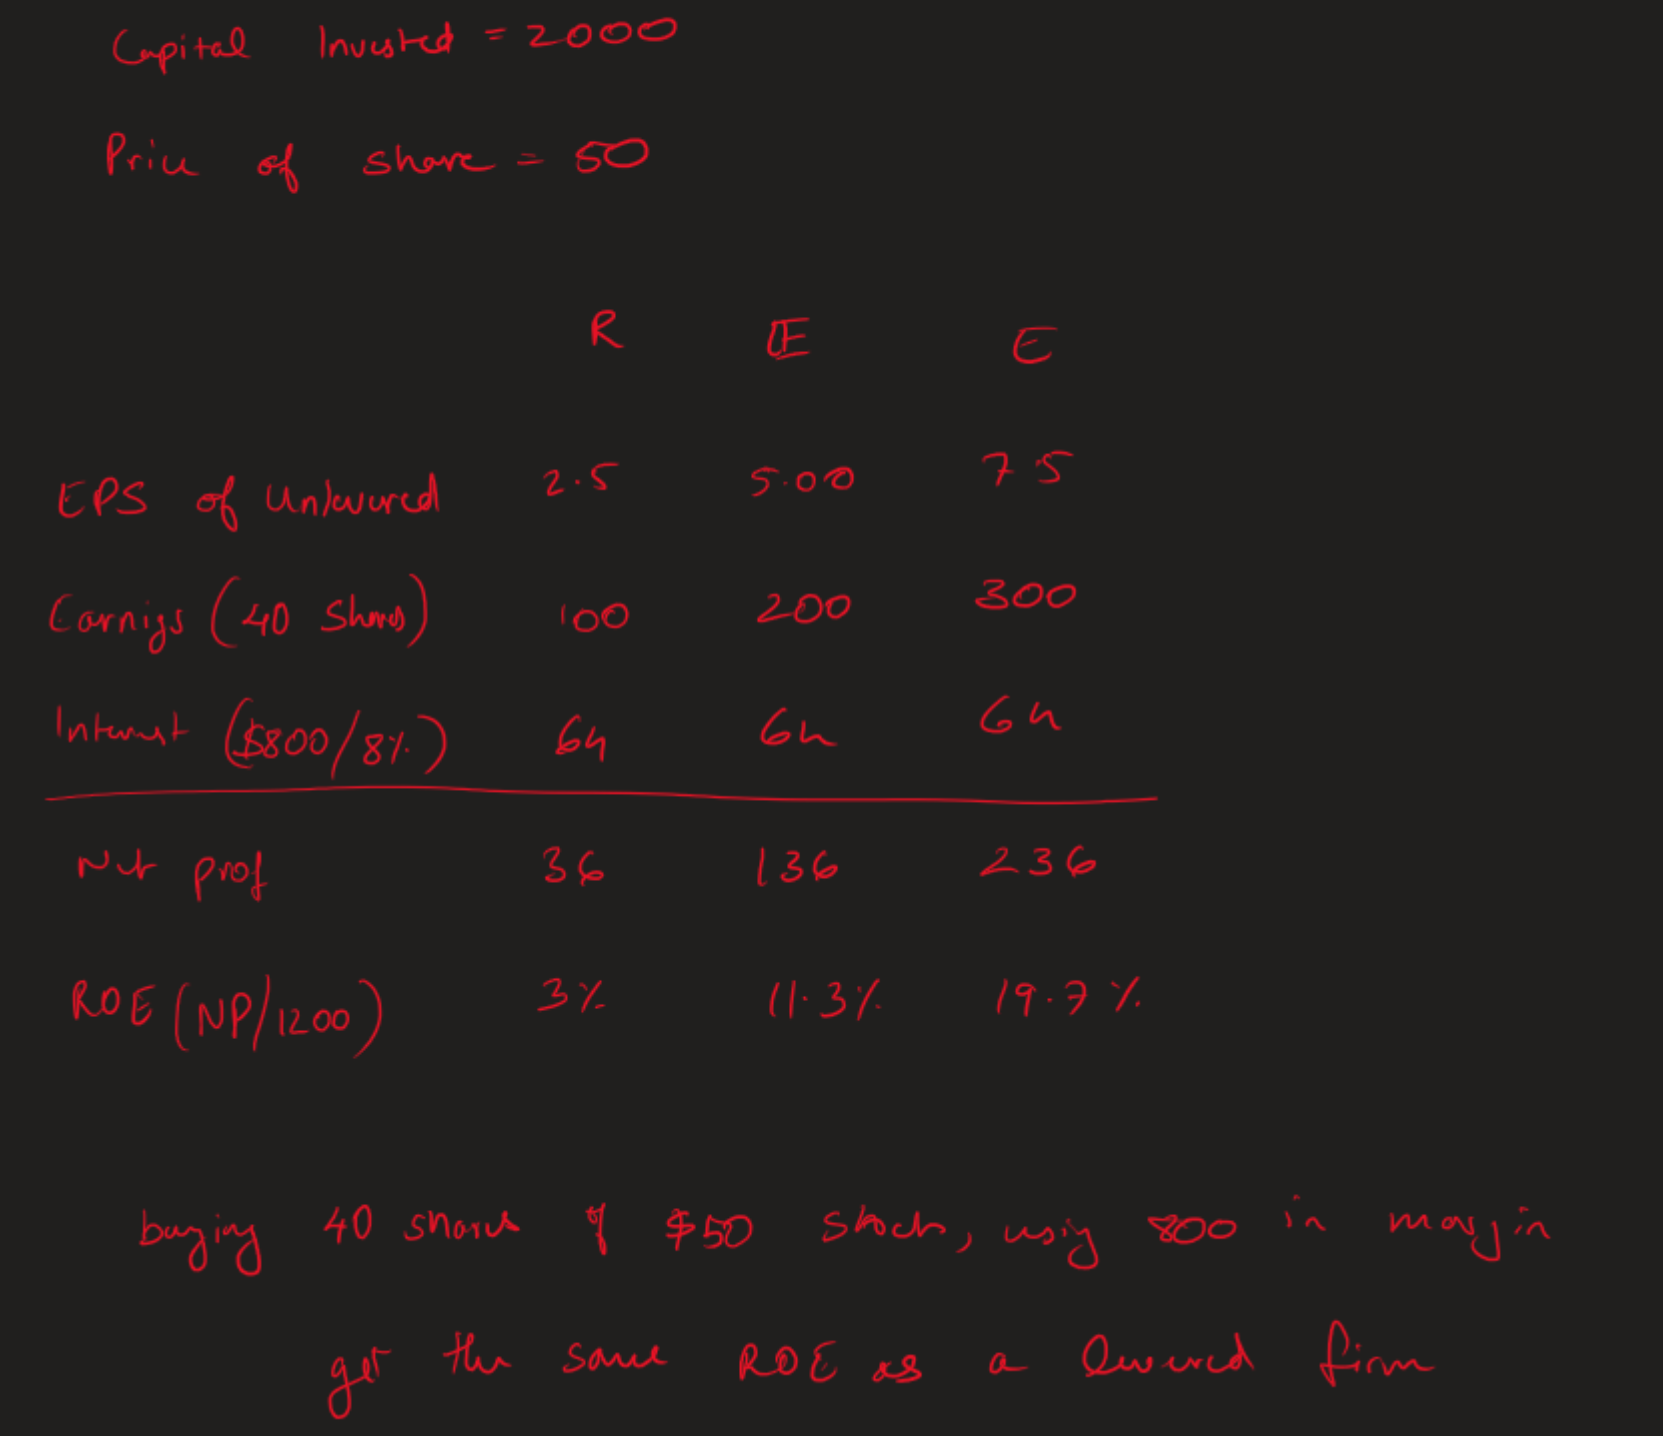 Capital Invested = 2000
Price of share = 50
R E E
EPS of Unlevered 2.5 5.00 7.5
Earnigs (40 Shares) 100 200 300
Interest ($800/8%) 64 64 64
Net prof 36 136 236
ROE (NP/1200) 3% 11.3% 19.7%
buying 40 shares of $50 stock, using 800 in margin
get the same ROE as a levered firm